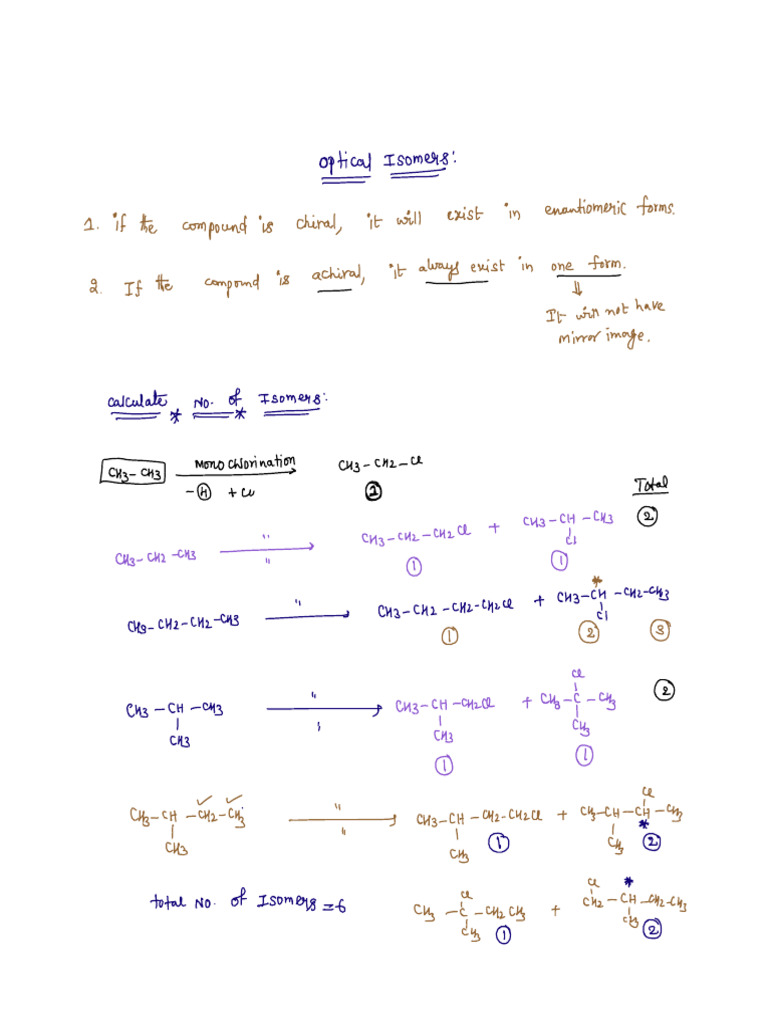 Optical Isomers:
1. if the compound is chiral, it will exist in enantiomeric forms.
2. If the compound is achiral, it always exist in one form.
⇓
It will not have
mirror image.
calculate No. of Isomers:
* *
CH3-CH3 Mono chlorination CH3-CH2-Cl
-H +Cl 1
Total
CH3-CH2-CH3 " CH3-CH2-CH2Cl + CH3-CH-CH3 2
" Cl
1 1
*
CH3-CH2-CH2-CH3 " CH3-CH2-CH2-CH2Cl + CH3-CH-CH2-CH3
Cl
1 2 3
Cl
CH3-CH-CH3 " CH3-CH-CH2Cl + CH3-C-CH3 2
CH3 CH3 CH3
1 1
Cl
CH3-CH-CH2-CH3 " CH3-CH-CH2-CH2Cl + CH3-CH-CH-CH3
" *
CH3 CH3 1 CH3 2
Cl Cl *
total No. of Isomers = 6 CH3-C-CH2CH3 + CH2-CH-CH2-CH3
CH3 1 CH3 2